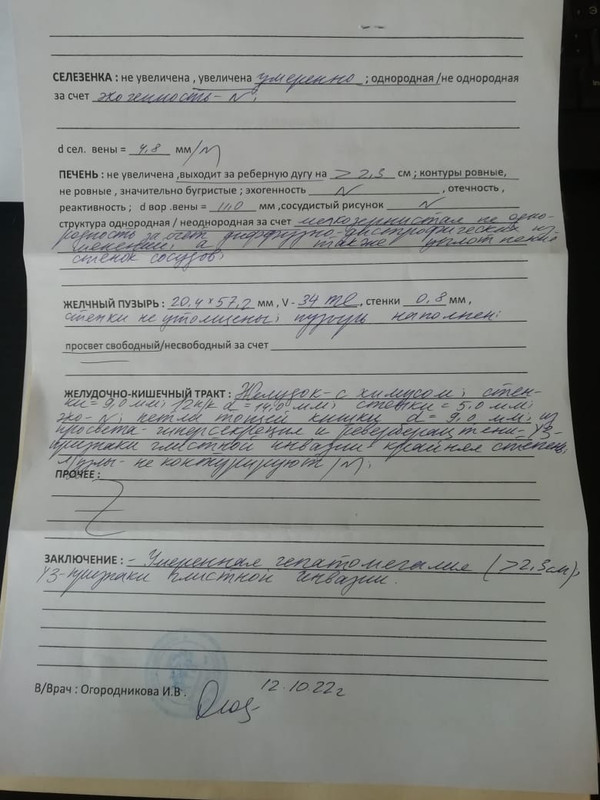 СЕЛЕЗЕНКА : не увеличена , увеличена умеренно ; однородная /не однородная
за счет эхогенность - N;
d сел. вены = 4,8 мм /N
ПЕЧЕНЬ : не увеличена ,выходит за реберную дугу на > 2,5 см ; контуры ровные,
не ровные , значительно бугристые ; эхогенность N , отечность ,
реактивность ; d вор .вены = 11,0 мм ,сосудистый рисунок N
структура однородная / неоднородная за счет мелкозернистая не одно-
родность за счет диффузно-дистрофических из-
менений; а также уплотнение
стенок сосудов;
ЖЕЛЧНЫЙ ПУЗЫРЬ : 20,4 * 57,2 мм , V - 34 ml , стенки 0,8 мм ,
стенки не утолщены; пузырь наполнен;
просвет свободный/несвободный за счет
ЖЕЛУДОЧНО-КИШЕЧНЫЙ ТРАКТ : Желудок - с химусом; стен-
ки = 9,0 мм; 12п/к d = 14,0 мм; стенки = 5,0 мм;
эхо - N; петли тонкой кишки d = 9,0 мм; из
просвета - и УЗ-
признаки глистной инвазии крайняя степень;
л/узлы - не контурируют /N;
ПРОЧЕЕ :
ЗАКЛЮЧЕНИЕ : - Умеренная гепатомегалия ( > 2,5 см),
УЗ-признаки глистной инвазии.
В/Врач : Огородникова И.В .
12.10.22г